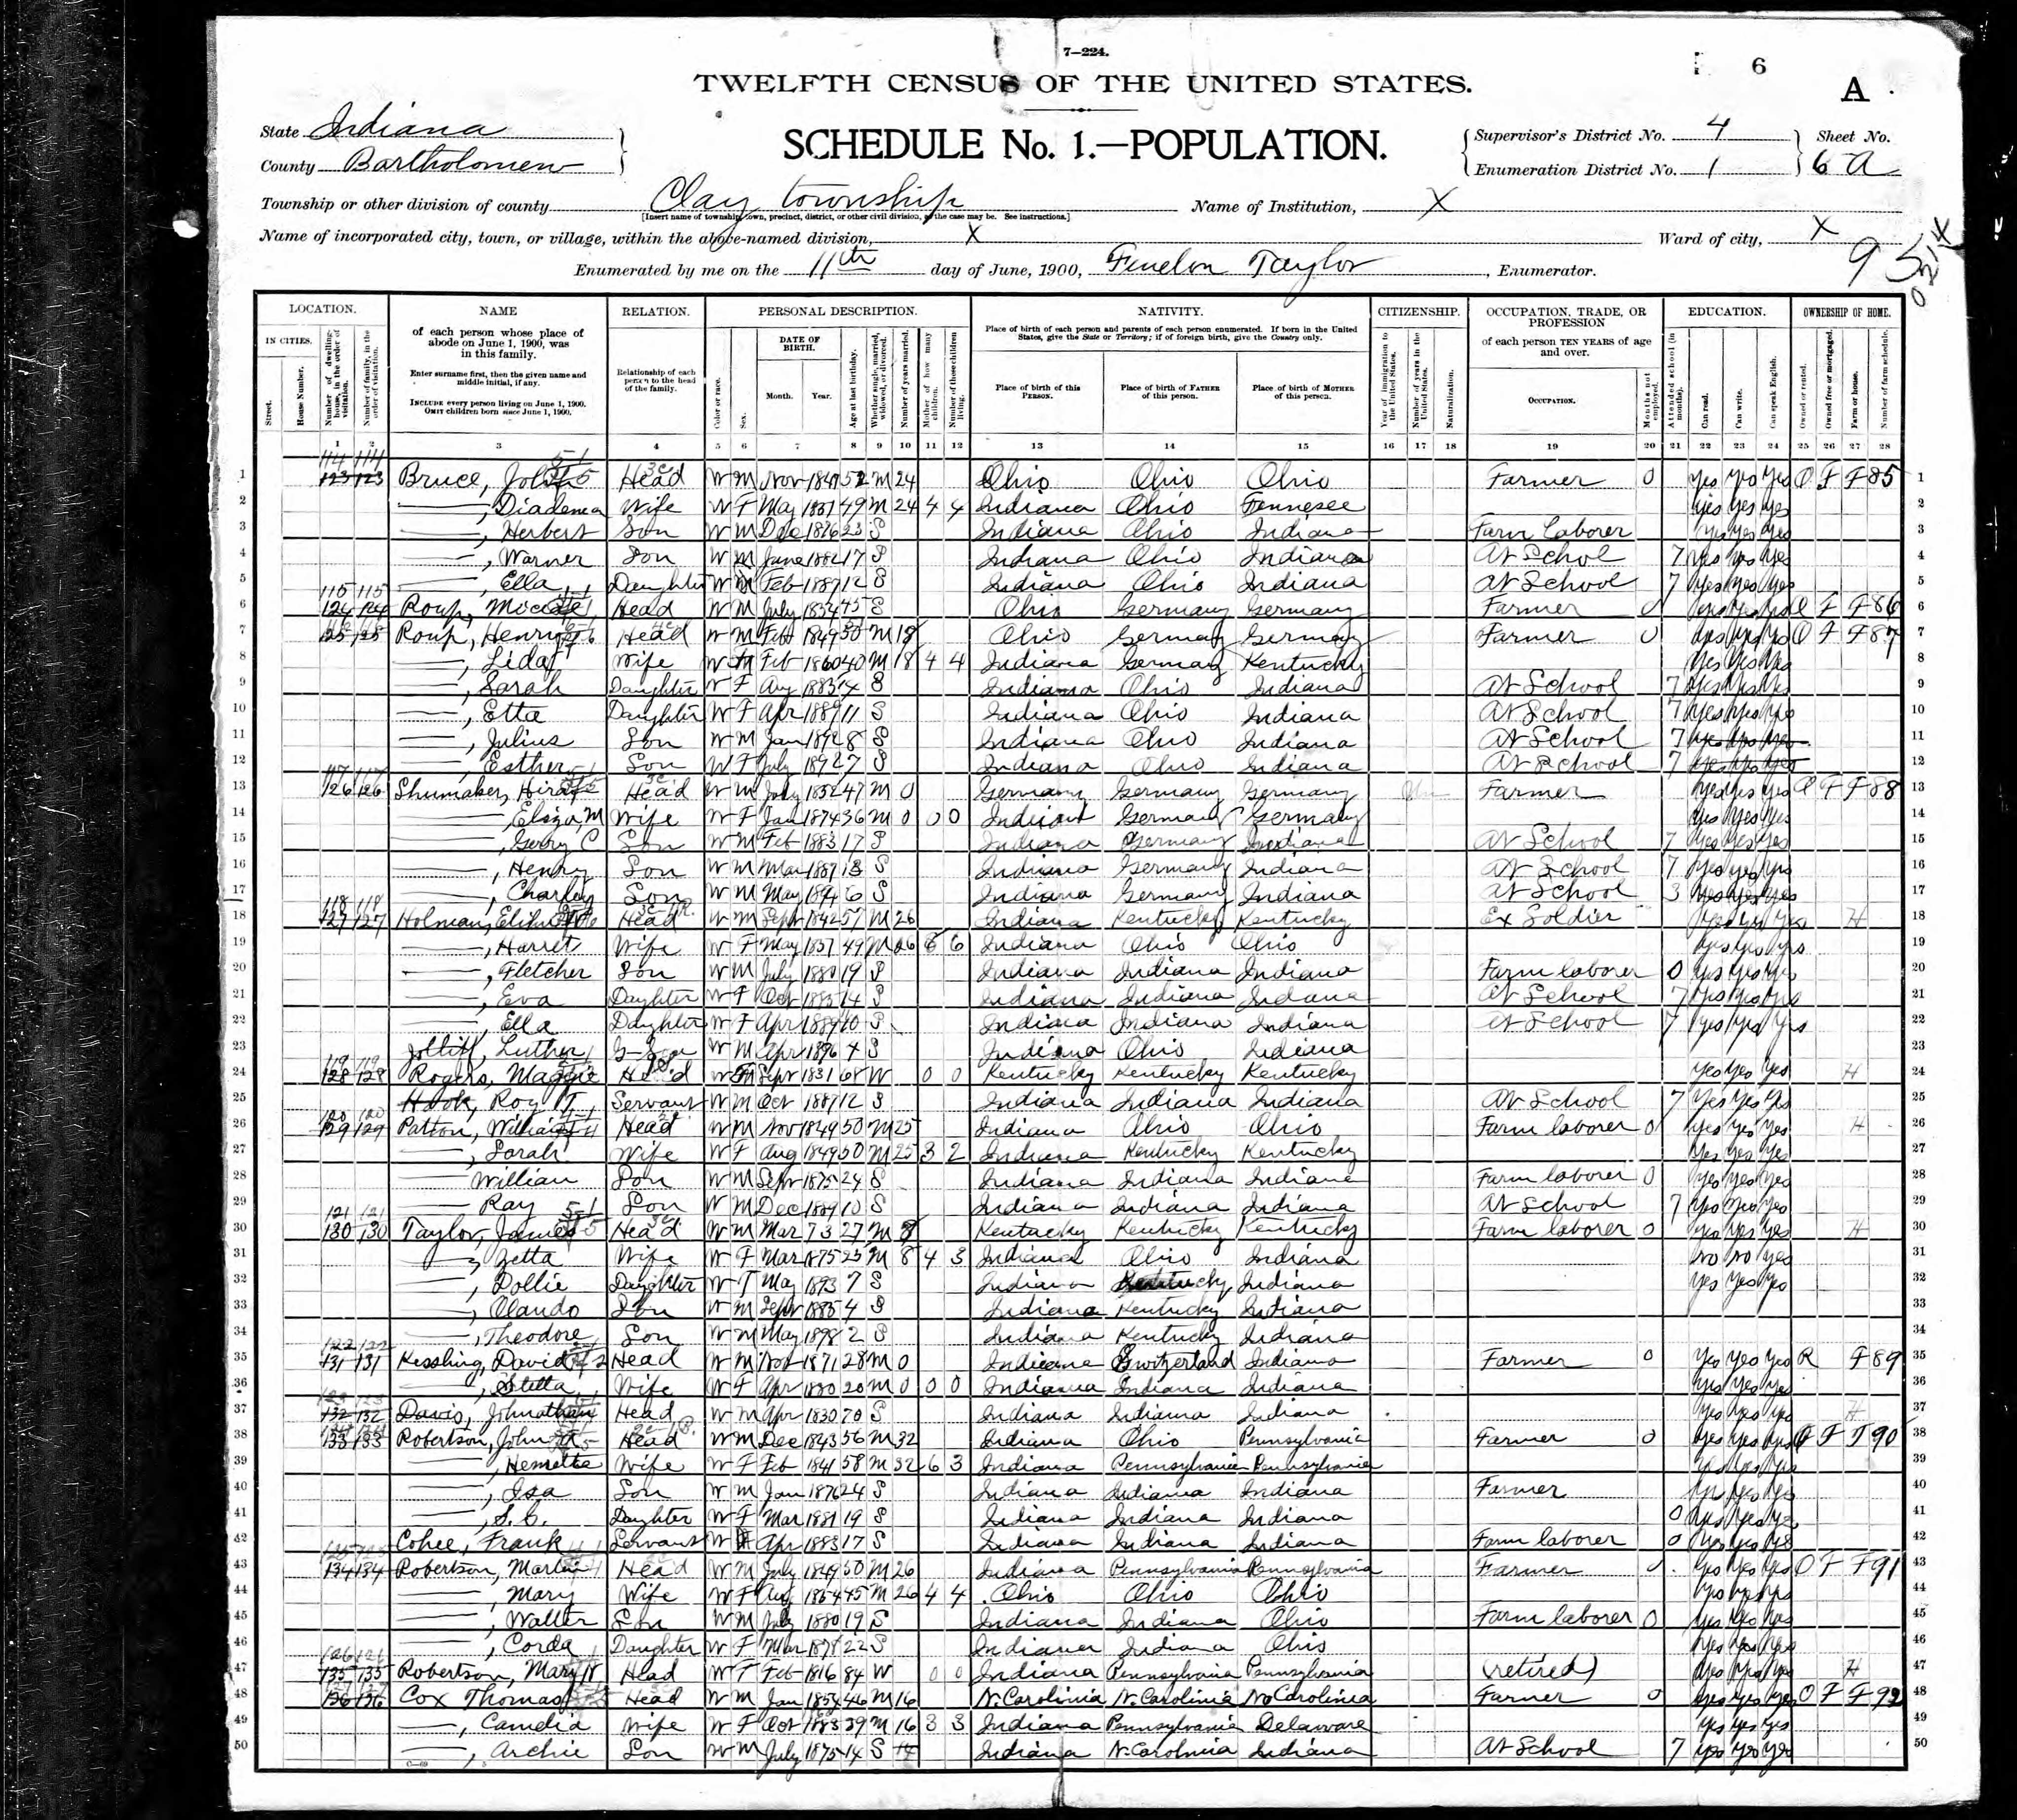 7—224.
6
A
TWELFTH CENSUS OF THE UNITED STATES.
State Indiana
County Bartholomew
SCHEDULE No. 1.—POPULATION.
Supervisor's District No. 4
Enumeration District No. 1
Sheet No.
6 A
Township or other division of county Clay township
[Insert name of township, town, precinct, district, or other civil division, as the case may be. See instructions.]
Name of Institution, X
Name of incorporated city, town, or village, within the above-named division, X
Ward of city, X
Enumerated by me on the 11th day of June, 1900, Fenelon Taylor, Enumerator.
LOCATION. NAME RELATION. PERSONAL DESCRIPTION. NATIVITY. CITIZENSHIP. OCCUPATION, TRADE, OR PROFESSION EDUCATION. OWNERSHIP OF HOME.
IN CITIES.
Street.
House Number.
Number of dwelling-house, in the order of visitation.
Number of family, in the order of visitation.
of each person whose place of abode on June 1, 1900, was in this family.
Enter surname first, then the given name and middle initial, if any.
INCLUDE every person living on June 1, 1900. OMIT children born since June 1, 1900.
Relationship of each person to the head of the family.
Color or race.
Sex.
DATE OF BIRTH.
Month. Year.
Age at last birthday.
Whether single, married, widowed, or divorced.
Number of years married.
Mother of how many children.
Number of these children living.
Place of birth of each person and parents of each person enumerated. If born in the United States, give the State or Territory; if of foreign birth, give the Country only.
Place of birth of this PERSON.
Place of birth of FATHER of this person.
Place of birth of MOTHER of this person.
Year of immigration to the United States.
Number of years in the United States.
Naturalization.
of each person TEN YEARS of age and over.
OCCUPATION.
Months not employed.
Attended school (in months).
Can read.
Can write.
Can speak English.
Owned or rented.
Owned free or mortgaged.
Farm or house.
Number of farm schedule.
1 2 3 4 5 6 7 8 9 10 11 12 13 14 15 16 17 18 19 20 21 22 23 24 25 26 27 28
1 123 123 Bruce, John Head W M Nov 1847 52 M 24 Ohio Ohio Ohio Farmer 0 Yes Yes Yes O F F 85 1
2 —, Diadema Wife W F May 49 M 24 4 4 Indiana Ohio Tennesee Yes Yes Yes 2
3 —, Herbert Son W M Dec 1876 23 S Indiana Ohio Indiana Farm laborer Yes Yes Yes 3
4 —, Warner Son W M June 1882 17 S Indiana Ohio Indiana At Schol 7 Yes Yes Yes 4
5 —, Ella Daughter W Feb 1887 12 S Indiana Ohio Indiana At School 7 Yes Yes Yes 5
6 124 124 Roup, Head W M July 1854 45 S Ohio Germany Germany Farmer 0 Yes Yes Yes O F F 86 6
7 125 125 Roup, Henry Head W M Feb 1849 50 M 18 Ohio Germany Germany Farmer 0 Yes Yes Yes O F F 87 7
8 —, Lida Wife W Feb 1860 40 M 18 4 4 Indiana Germany Kentucky Yes Yes Yes 8
9 —, Sarah Daughter W F Aug 1883 S Indiana Ohio Indiana At School 7 Yes Yes Yes 9
10 —, Etta Daughter W F Apr 1889 11 S Indiana Ohio Indiana At School 7 Yes Yes Yes 10
11 —, Julius Son W M Jan 1892 8 S Indiana Ohio Indiana At School 7 Yes Yes Yes 11
12 —, Esther Son W F July 1892 7 S Indiana Ohio Indiana At School 7 Yes Yes Yes 12
13 126 126 Shumaker, Hiram Head W M July 1852 47 M 0 Germany Germany Germany Farmer Yes Yes Yes O F F 88 13
14 —, Eliza, M Wife W F Jan 36 M 0 0 0 Germany Germany Yes Yes Yes 14
15 — C Son W M Feb 1883 17 S Indiana Germany Indiana At School 7 Yes Yes Yes 15
16 —, Henry Son W M Mar 1887 13 S Indiana Germany Indiana At School 7 Yes Yes Yes 16
17 —, Charley Son W M May 1894 6 S Indiana Germany Indiana At School 3 Yes Yes Yes 17
18 127 127 Holman, Head W M Sept 1842 57 M 26 Indiana Kentucky Kentucky Ex Soldier Yes Yes Yes H 18
19 —, Harret Wife W F May 49 M 26 6 6 Indiana Ohio Ohio Yes Yes Yes 19
20 —, Fletcher Son W M July 1880 19 S Indiana Indiana Indiana Farm laborer 0 Yes Yes Yes 20
21 —, Eva Daughter W F Oct 1885 14 S Indiana Indiana Indiana At School 7 Yes Yes Yes 21
22 —, Ella Daughter W F Apr 1889 10 S Indiana Indiana Indiana At School 7 Yes Yes Yes 22
23 Jolliff, Luther G-Son W M Apr 1896 4 S Indiana Ohio Indiana 23
24 128 128 Rogers, Maggie Head W F Sept 1831 68 W 0 0 Kentucky Kentucky Kentucky Yes Yes Yes H 24
25 Hook, Roy T Servant W M Oct 1887 12 S Indiana Indiana Indiana At School 7 Yes Yes Yes 25
26 129 129 Patton, William Head W M Nov 1849 50 M 25 Indiana Ohio Ohio Farm laborer 0 Yes Yes Yes H 26
27 —, Sarah Wife W F Aug 1849 50 M 25 3 2 Indiana Kentucky Kentucky Yes Yes Yes 27
28 — William Son W M Sept 1875 24 S Indiana Indiana Indiana Farm laborer 0 Yes Yes Yes 28
29 — Ray Son W M Dec 1889 10 S Indiana Indiana Indiana At School 7 Yes Yes Yes 29
30 130 130 Taylor, James Head W M Mar 73 27 M 8 Kentucky Kentucky Kentucky Farm laborer 0 Yes Yes Yes H 30
31 —, Zetta Wife W F Mar 1875 25 M 8 4 3 Indiana Ohio Indiana No No Yes 31
32 —, Dollie Daughter W F May 1893 7 S Indiana Kentucky Indiana Yes Yes Yes 32
33 —, Claudo Son W M Sept 4 S Indiana Kentucky Indiana 33
34 —, Theodore Son W M May 1898 2 S Indiana Kentucky Indiana 34
35 131 131 Kessling, David Head W M Nov 1871 28 M 0 Indiana Switzerland Indiana Farmer 0 Yes Yes Yes R F 89 35
36 —, Stella Wife W F Apr 1880 20 M 0 0 0 Indiana Indiana Indiana Yes Yes Yes 36
37 132 132 Davis, Johnathan Head W M Apr 1830 70 S Indiana Indiana Indiana Yes Yes Yes H 37
38 133 133 Robertson, John Head W M Dec 1843 56 M 32 Indiana Ohio Pennsylvania Farmer 0 Yes Yes Yes O F F 90 38
39 —, Henretta Wife W F Feb 1841 58 M 32 6 3 Indiana Pennsylvania Pennsylvania Yes Yes Yes 39
40 —, Isa Son W M Jan 1876 24 S Indiana Indiana Indiana Farmer Yes Yes Yes 40
41 —, S. C. Daughter W F Mar 1881 19 S Indiana Indiana Indiana 0 Yes Yes Yes 41
42 Cohee, Frank Servant W Apr 1883 17 S Indiana Indiana Indiana Farm laborer 0 Yes Yes Yes 42
43 134 134 Robertson, Martin Head W M July 1849 50 M 26 Indiana Pennsylvania Pennsylvania Farmer 0 Yes Yes Yes O F F 91 43
44 —, Mary Wife W F Aug 1854 45 M 26 4 4 Ohio Ohio Ohio Yes Yes Yes 44
45 —, Walter Son W M July 1880 19 S Indiana Indiana Ohio Farm laborer 0 Yes Yes Yes 45
46 —, Corda Daughter W F Mar 1878 22 S Indiana Indiana Ohio Yes Yes Yes 46
47 135 135 Robertson, Mary Head W F Feb 1816 84 W 0 0 Indiana Pennsylvania Pennsylvania (retired) Yes Yes Yes H 47
48 136 136 Cox Thomas Head W M Jan 1854 46 M 16 N. Carolinia N. Carolinia No Carolinia Farmer 0 Yes Yes Yes O F F 92 48
49 —, Camdia Wife W F Oct 39 M 16 3 3 Indiana Pennsylvania Delaware Yes Yes Yes 49
50 —, Archie Son W M July 14 S Indiana N. Carolinia Indiana At School 7 Yes Yes Yes 50